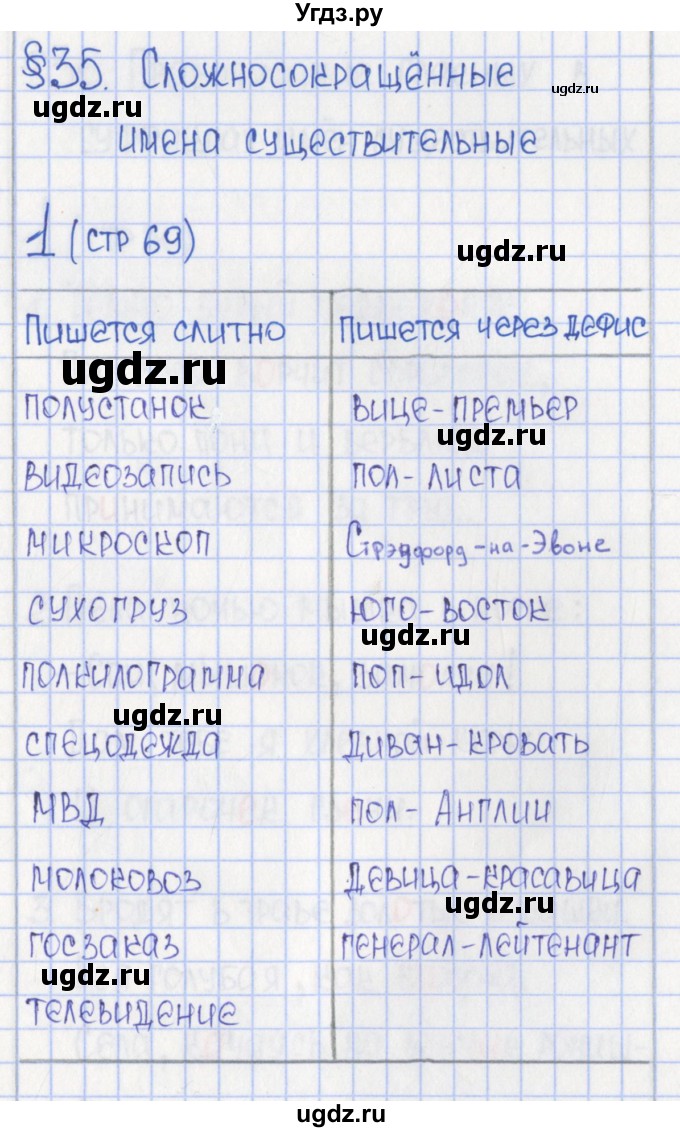 Угдз.ру
§35. Сложносокращённые
ugdz.ru
ugdz.ru
имена существительные
1 (стр 69)
ugdz.ru
Пишется слитно Пишется через дефис
ugdz.ru
полустанок вице-премьер
ugdz.ru
видеозапись пол-листа
микроскоп Стрэдфорд-на-Эвоне
сухогруз юго-восток
ugdz.ru
полкилограмма поп-идол
ugdz.ru
спецодежда диван-кровать
МВД пол-Англии
молоковоз девица-красавица
ugdz.ru
госзаказ генерал-лейтенант
ugdz.ru
телевидение
ugdz.ru